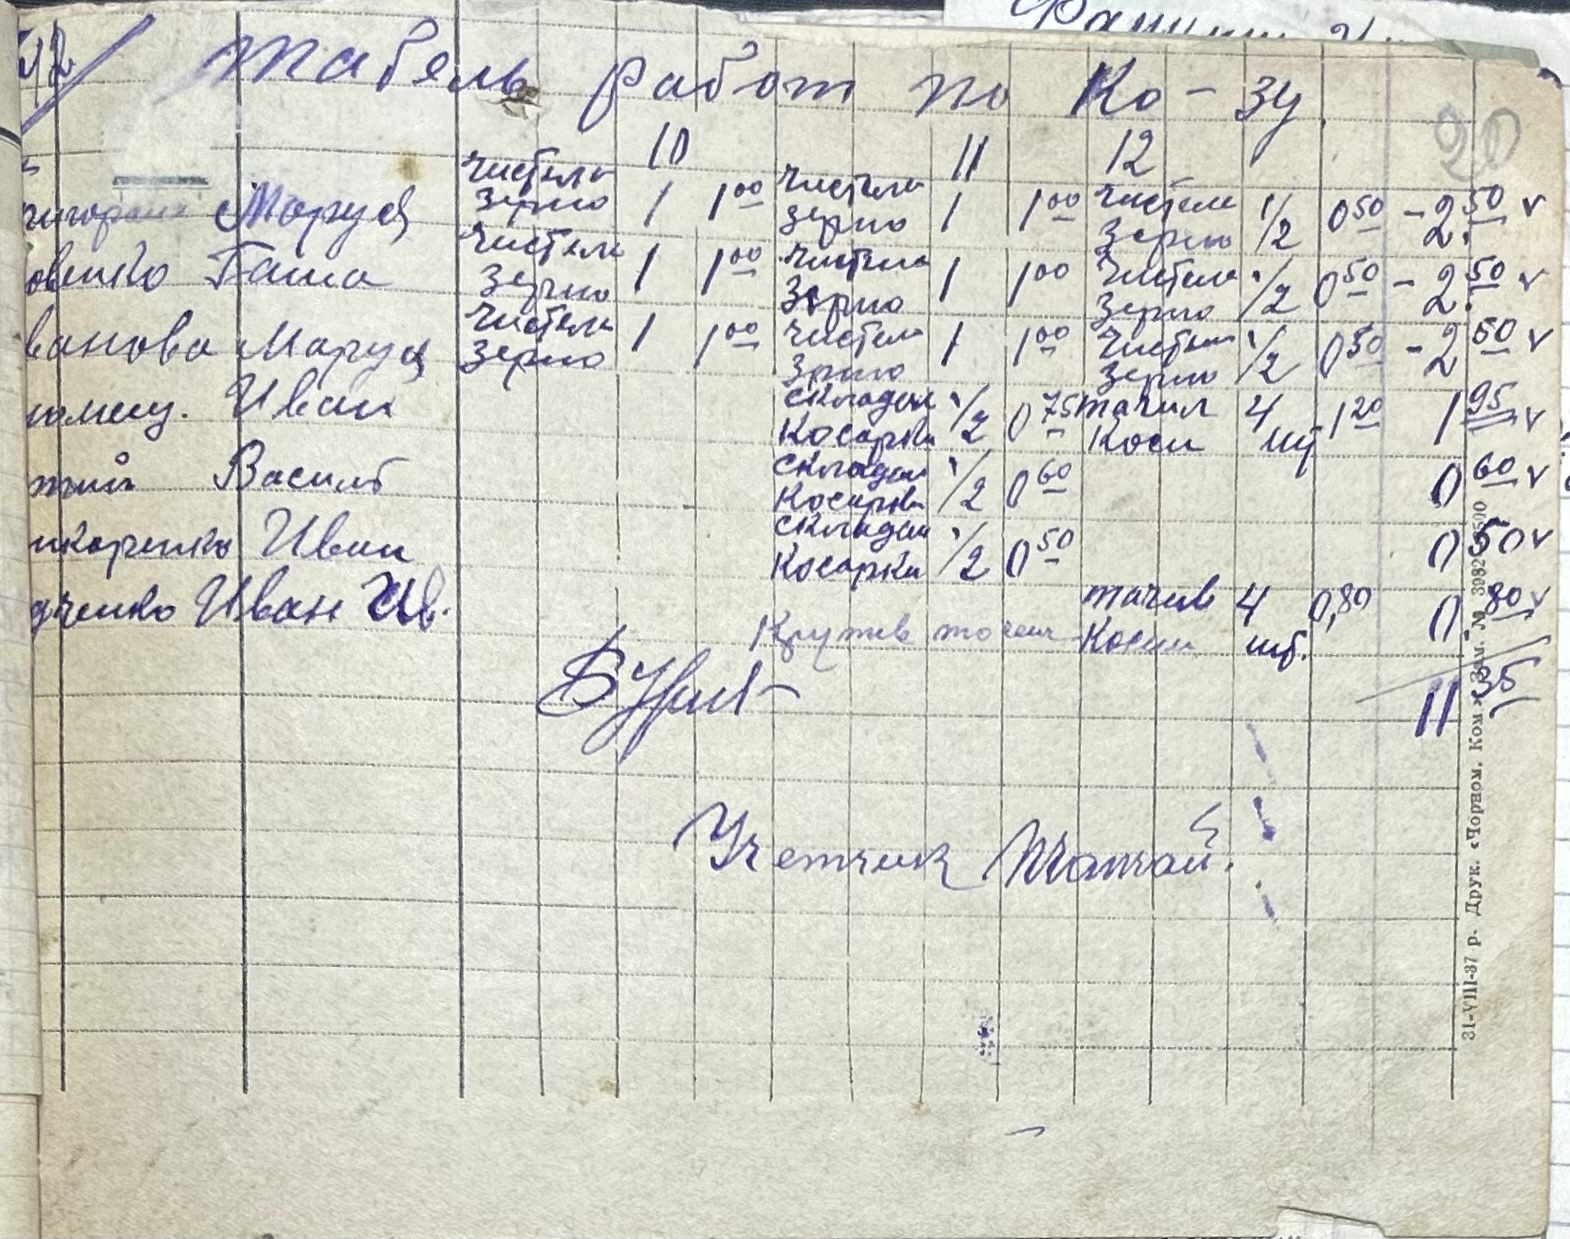 Табель работ по Ко-зу.
20
10 11 12
Маруся чистела зерно 1 1 00 чистела зерно 1 1 00 чистела зерно 1/2 0 50 - 2 50 v
овенко Гаша чистела зерно 1 1 00 чистела зерно 1 1 00 чистела зерно 1/2 0 50 - 2. 50 v
ванова Маруся чистела зерно 1 1 00 чистела зрно 1 1 00 чистела зерно 1/2 0 50 - 2 50 v
Иван складал косарки 1/2 0 75 тачил коси 4 шт 1 20 1 95 v
Василь складал косарки 1/2 0 60 0 60 v
Иван складал косарки 1/2 0 50 0 50 v
дченко Иван Ив. Крутив точил тачив косы 4 шт. 0,80 0 80 v
11 35
Учетчик
31-VIII-37 р. Друк. «Чорном. Ком.» Зам. №